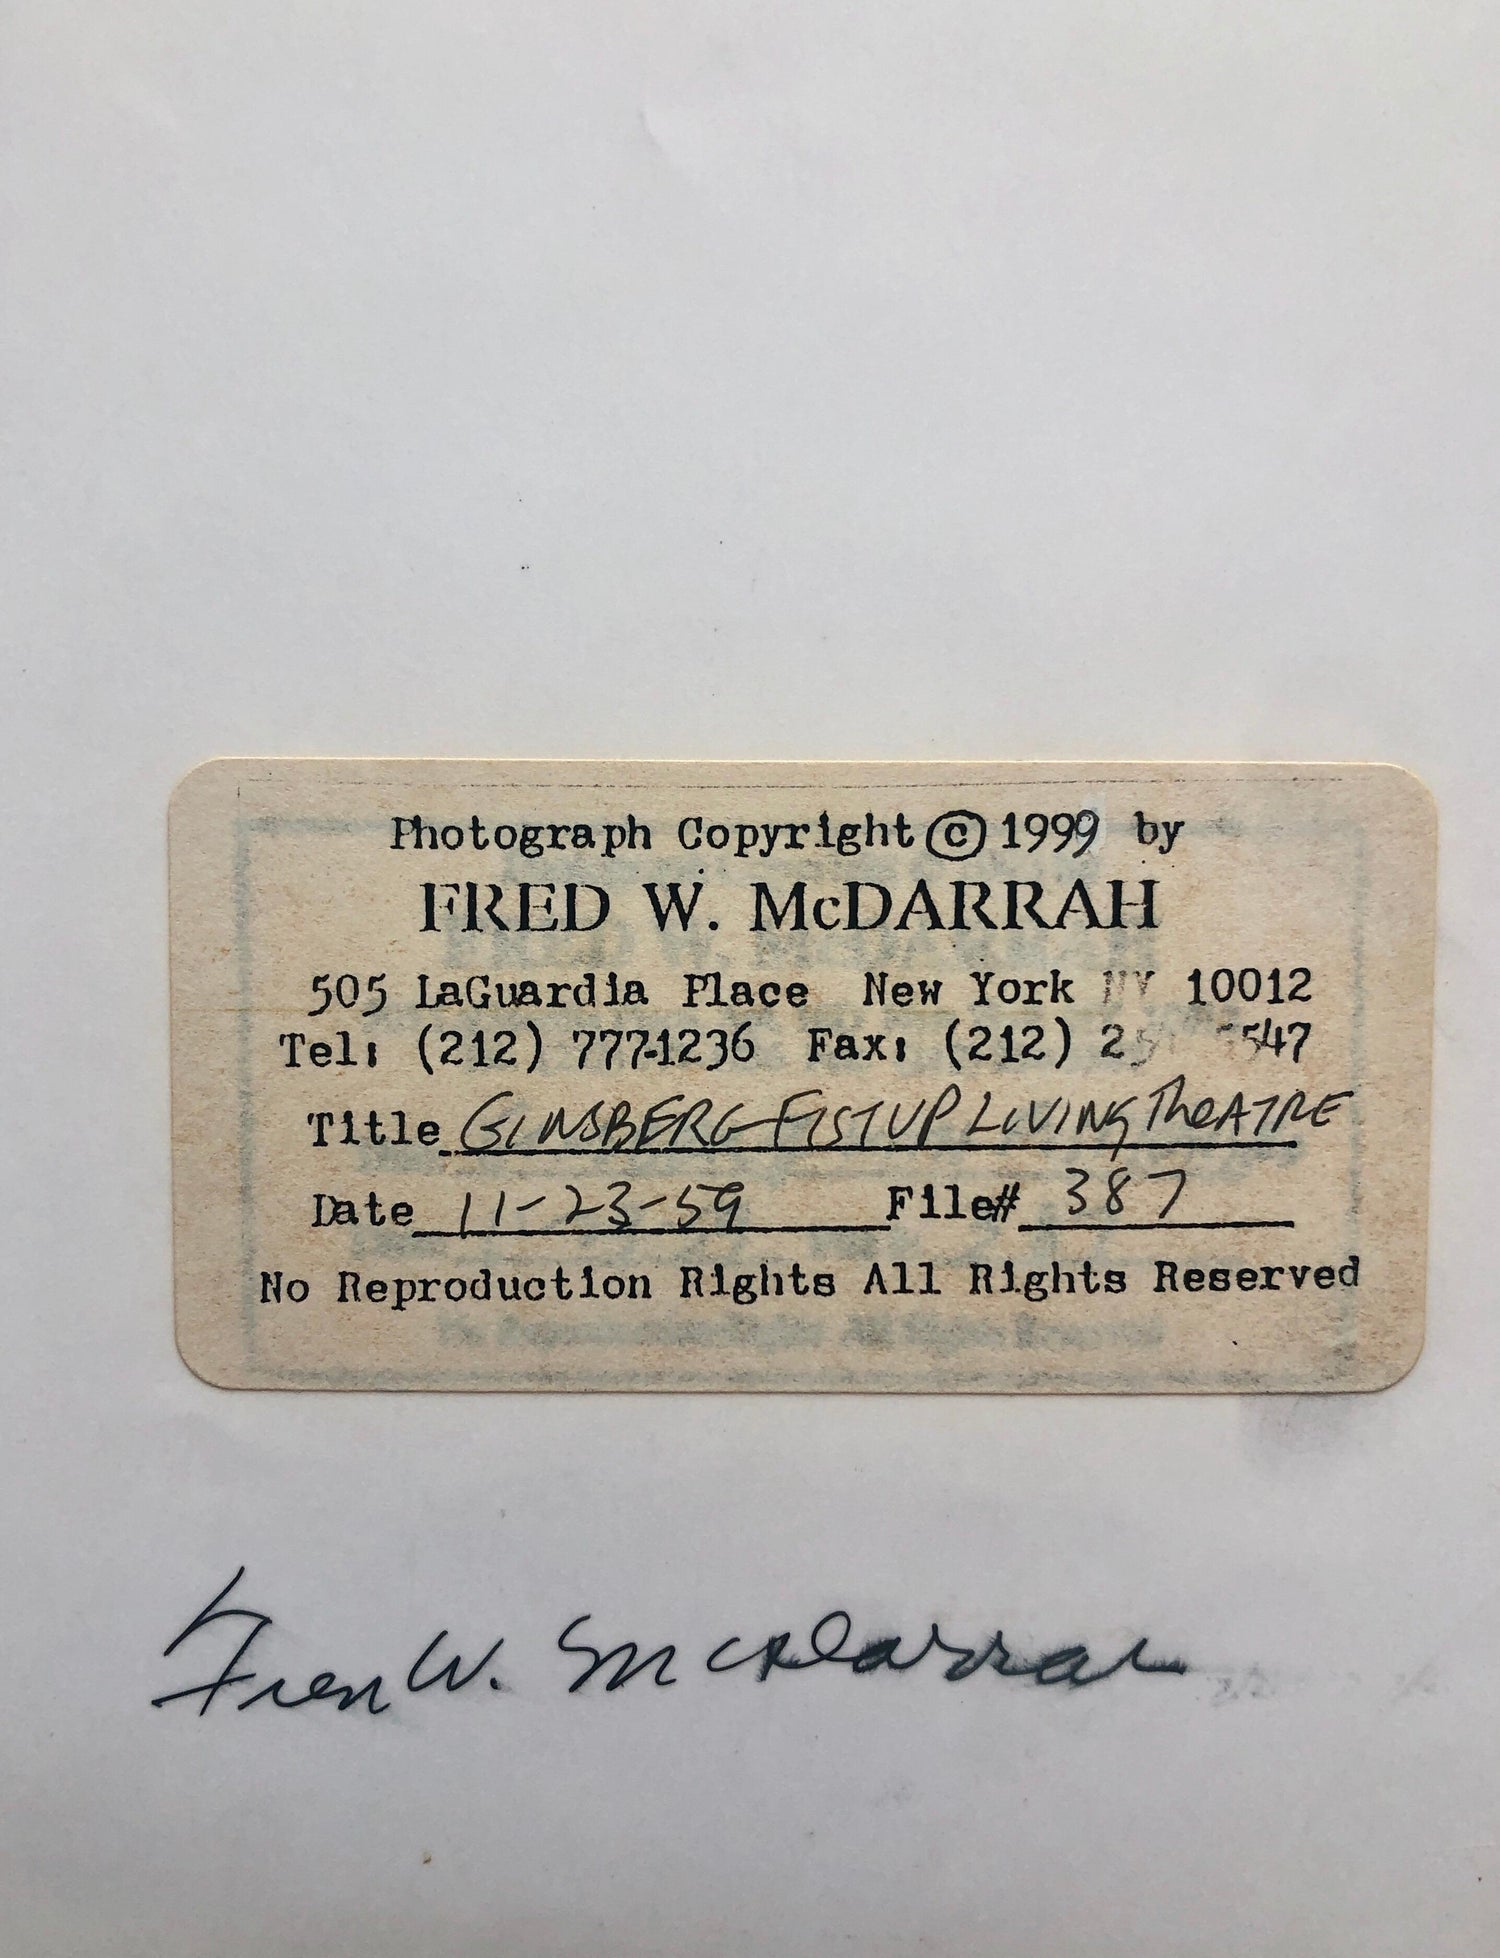 Photograph Copyright © 1999 by
FRED W. McDARRAH
505 LaGuardia Place New York NY 10012
Tel: (212) 777-1236 Fax: (212)
Title GINSBERG FIST UP LIVING TheATRE
Date 11-23-59 File# 387
No Reproduction Rights All Rights Reserved
Fred W. McDarrah